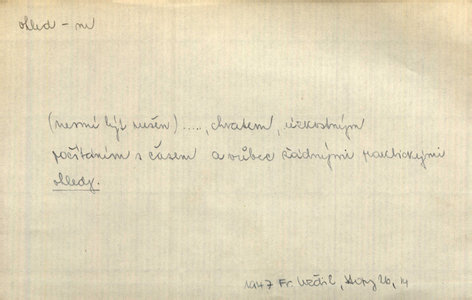 ohled – m
(nesmí být rušen) ....., chvatem, úzkostným
počítáním s časem a vůbec žádnými praktickými
ohledy.
1947 Fr. 26, 14